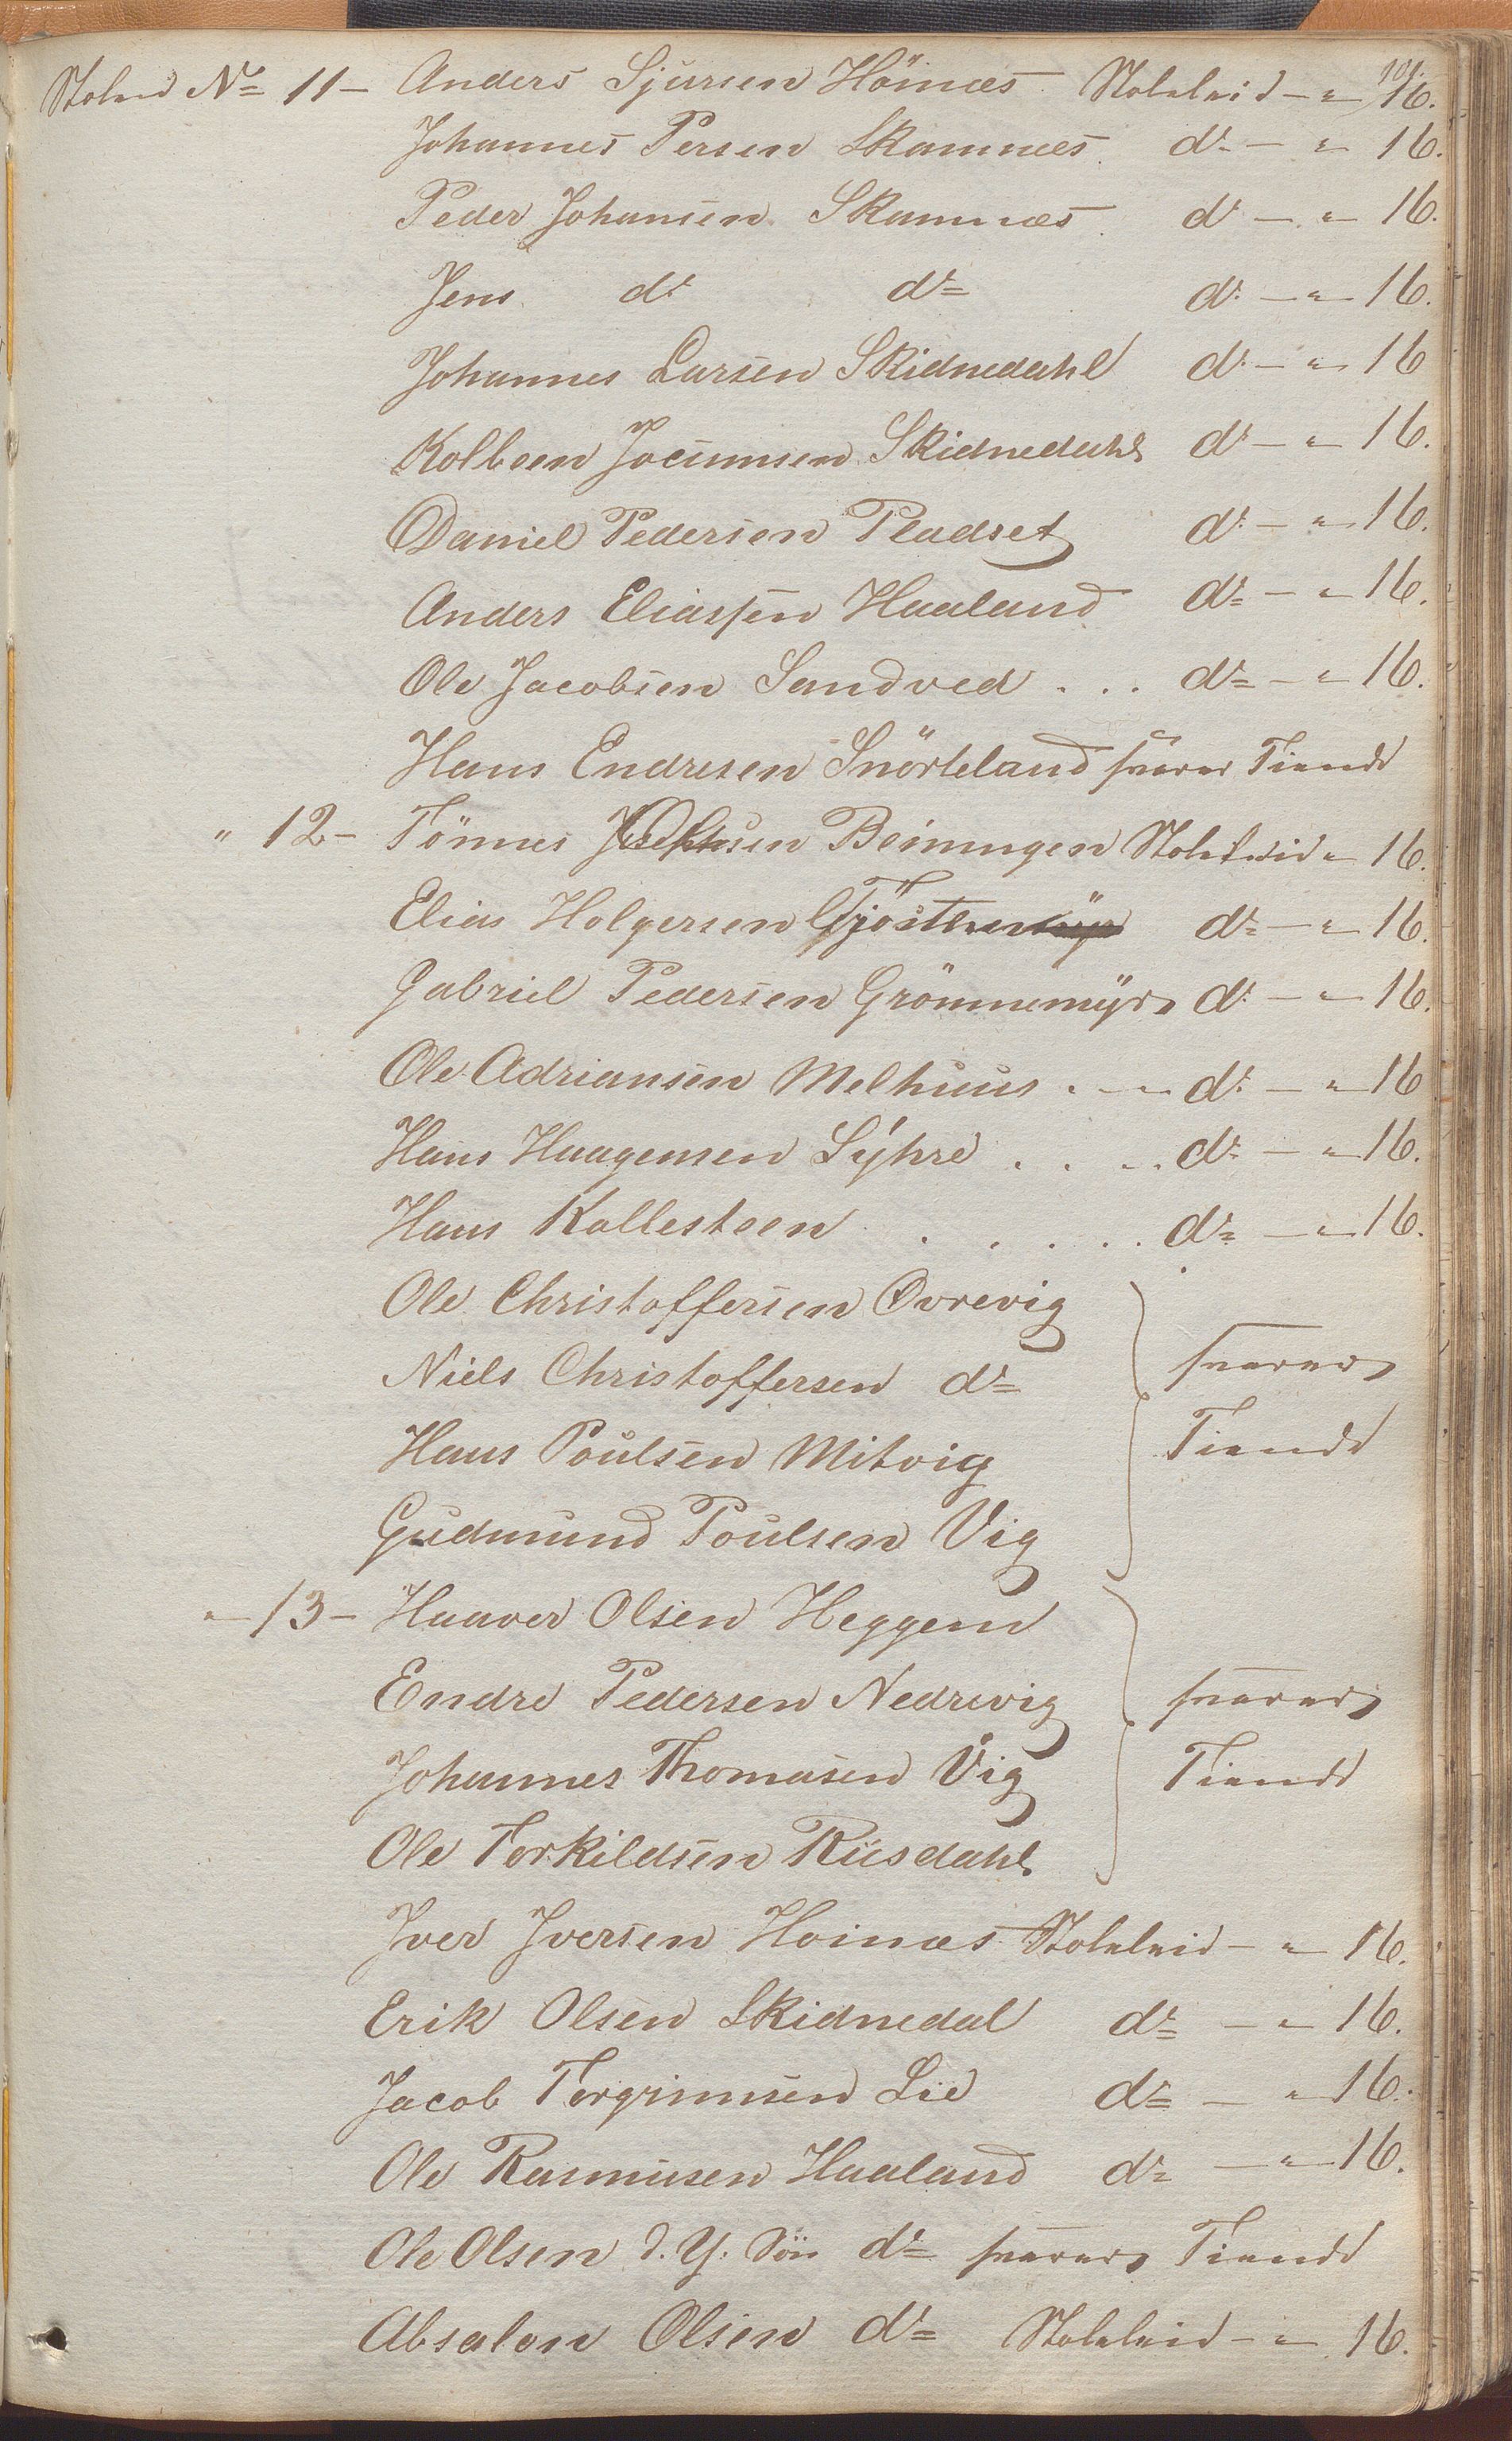 101.
Stolen No 11 - Anders Sjursen Höinæs Stoleleie - " - 16.
Johannes Persen Skamnæs d: - " - 16.
Peder Johansen Skamnæs d: - " - 16.
Jens d: d: d: - " - 16.
Johannes Larsen Skidnedahl d: - " - 16
Kolbeen Jocumsen Skidnedahl d: - " - 16.
Daniel Pedersen Pladset d: - " - 16.
Anders Eliassen Haaland d: - " - 16.
Ole Jacobsen Sandved . . . d: - " - 16.
Hans Endresen Snörteland svarer Tiende
" 12 - Tönnes Beiningen Stoleleie " - 16.
Elias Holgersen d: - " - 16.
Gabriel Pedersen Grönnemÿr d: - " - 16.
Ole Adriansen Melhuus . - - d: - " - 16
Hans Haagensen Lÿhre . . . d: - " - 16.
Hans Kallesteen . . . . . d: - " - 16.
Ole Christoffersen Ovrevig
Niels Christoffersen d: svarer
Hans Poulsen Mitvig Tiende
Gudmund Poulsen Vig
" - 13 - Haaver Olsen Heggem
Endre Pedersen Nedrevig svarer
Johannes Thomasen Vig Tiende
Ole Torkildsen Riisdahl
Iver Iversen Hoinæs Stoleleie - " - 16.
Erik Olsen Skidnedal d: - " - 16.
Jacob Torgrimsen Lie d: - " - 16.
Ole Rasmusen Haaland d: - " - 16.
Ole Olsen d. Y. Sön d: svarer Tiende
Absalon Olsen d: Stoleleie - " - 16.